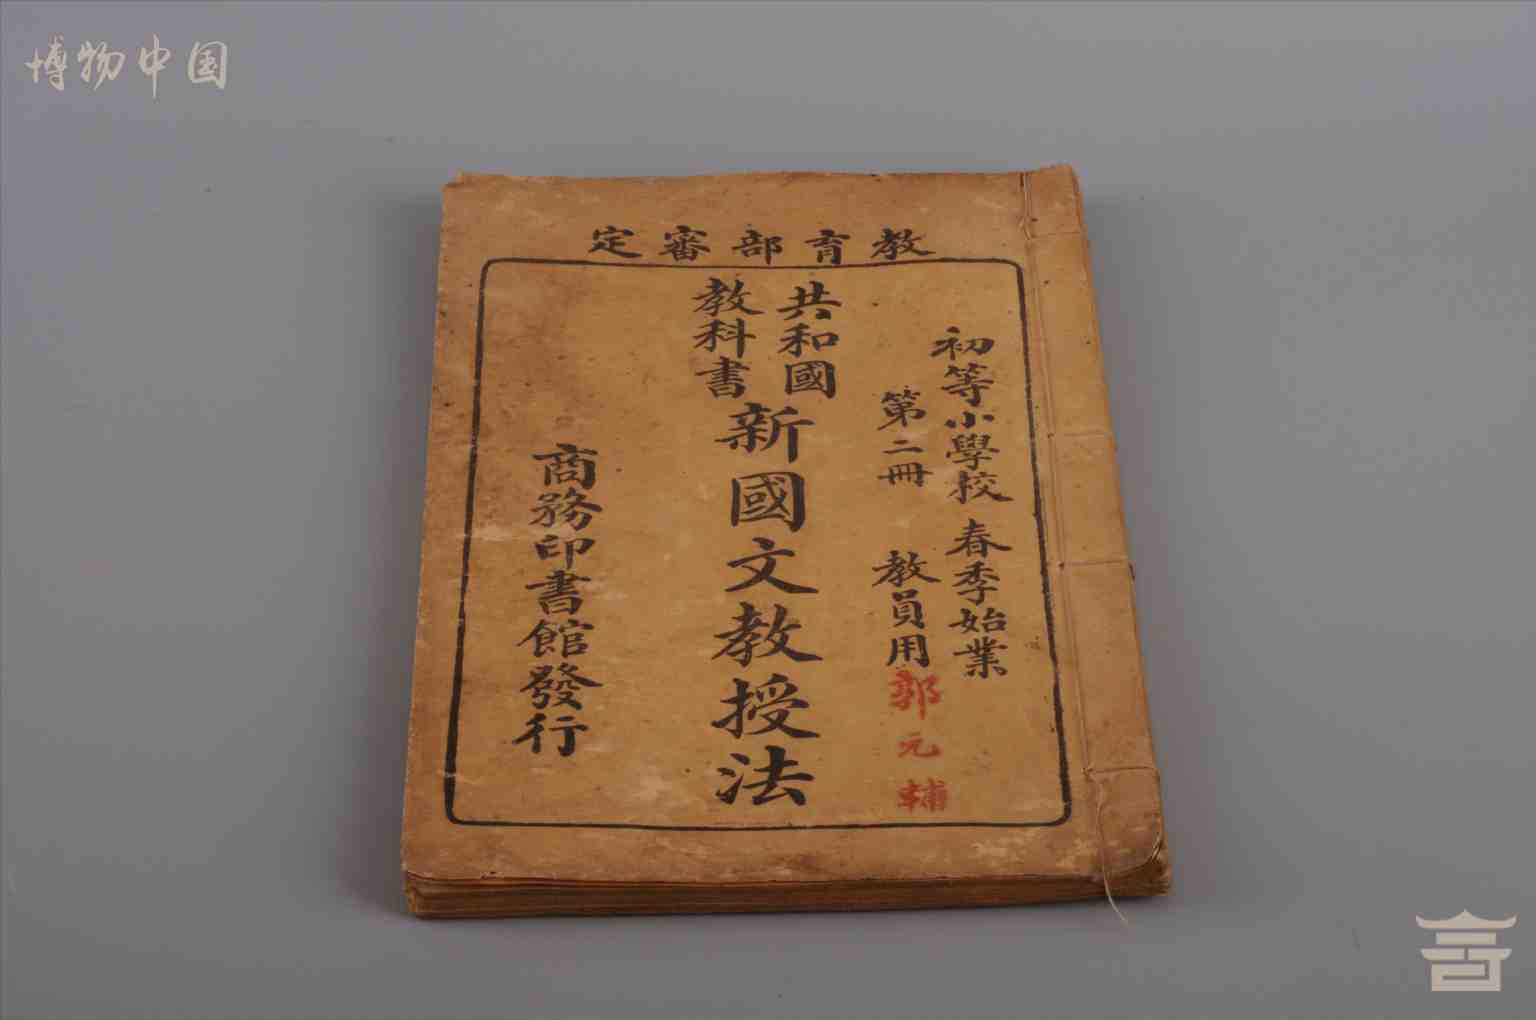 博物中国
教育部審定
初等小學校 春季始業
第二冊 教員用
郭元輔
共和國
教科書
新國文教授法
商務印書館發行